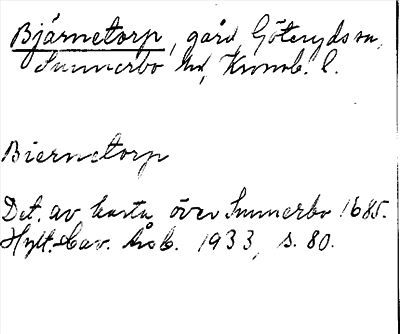 Bjärnetorp, gård, Göteryds sn,
Sunnerbo hd, Kronob. l.
Biernetorp
Det. av karta över Sunnerbo 1685.
Hylt.-Cav. årsb. 1933, s. 80.